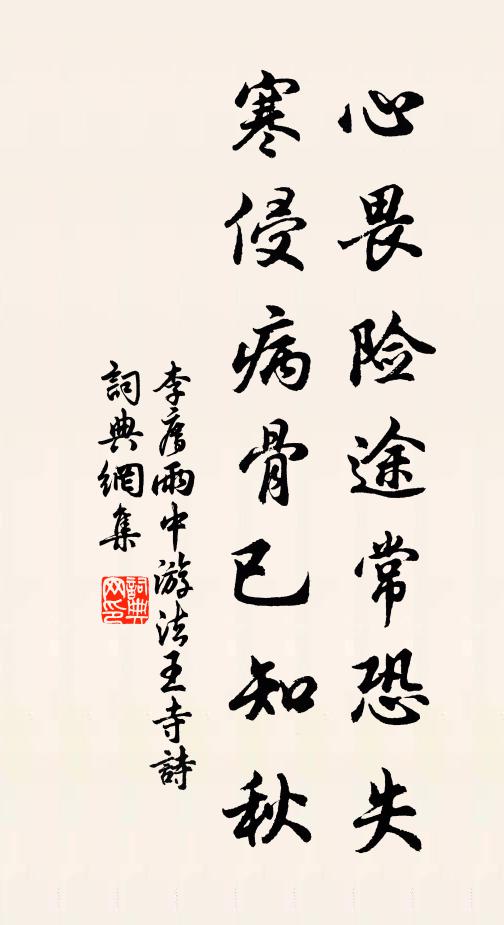 心畏险途常恐失
寒侵病骨已知秋
李廌雨中游法王寺詩
詞典網集
詞典
网印